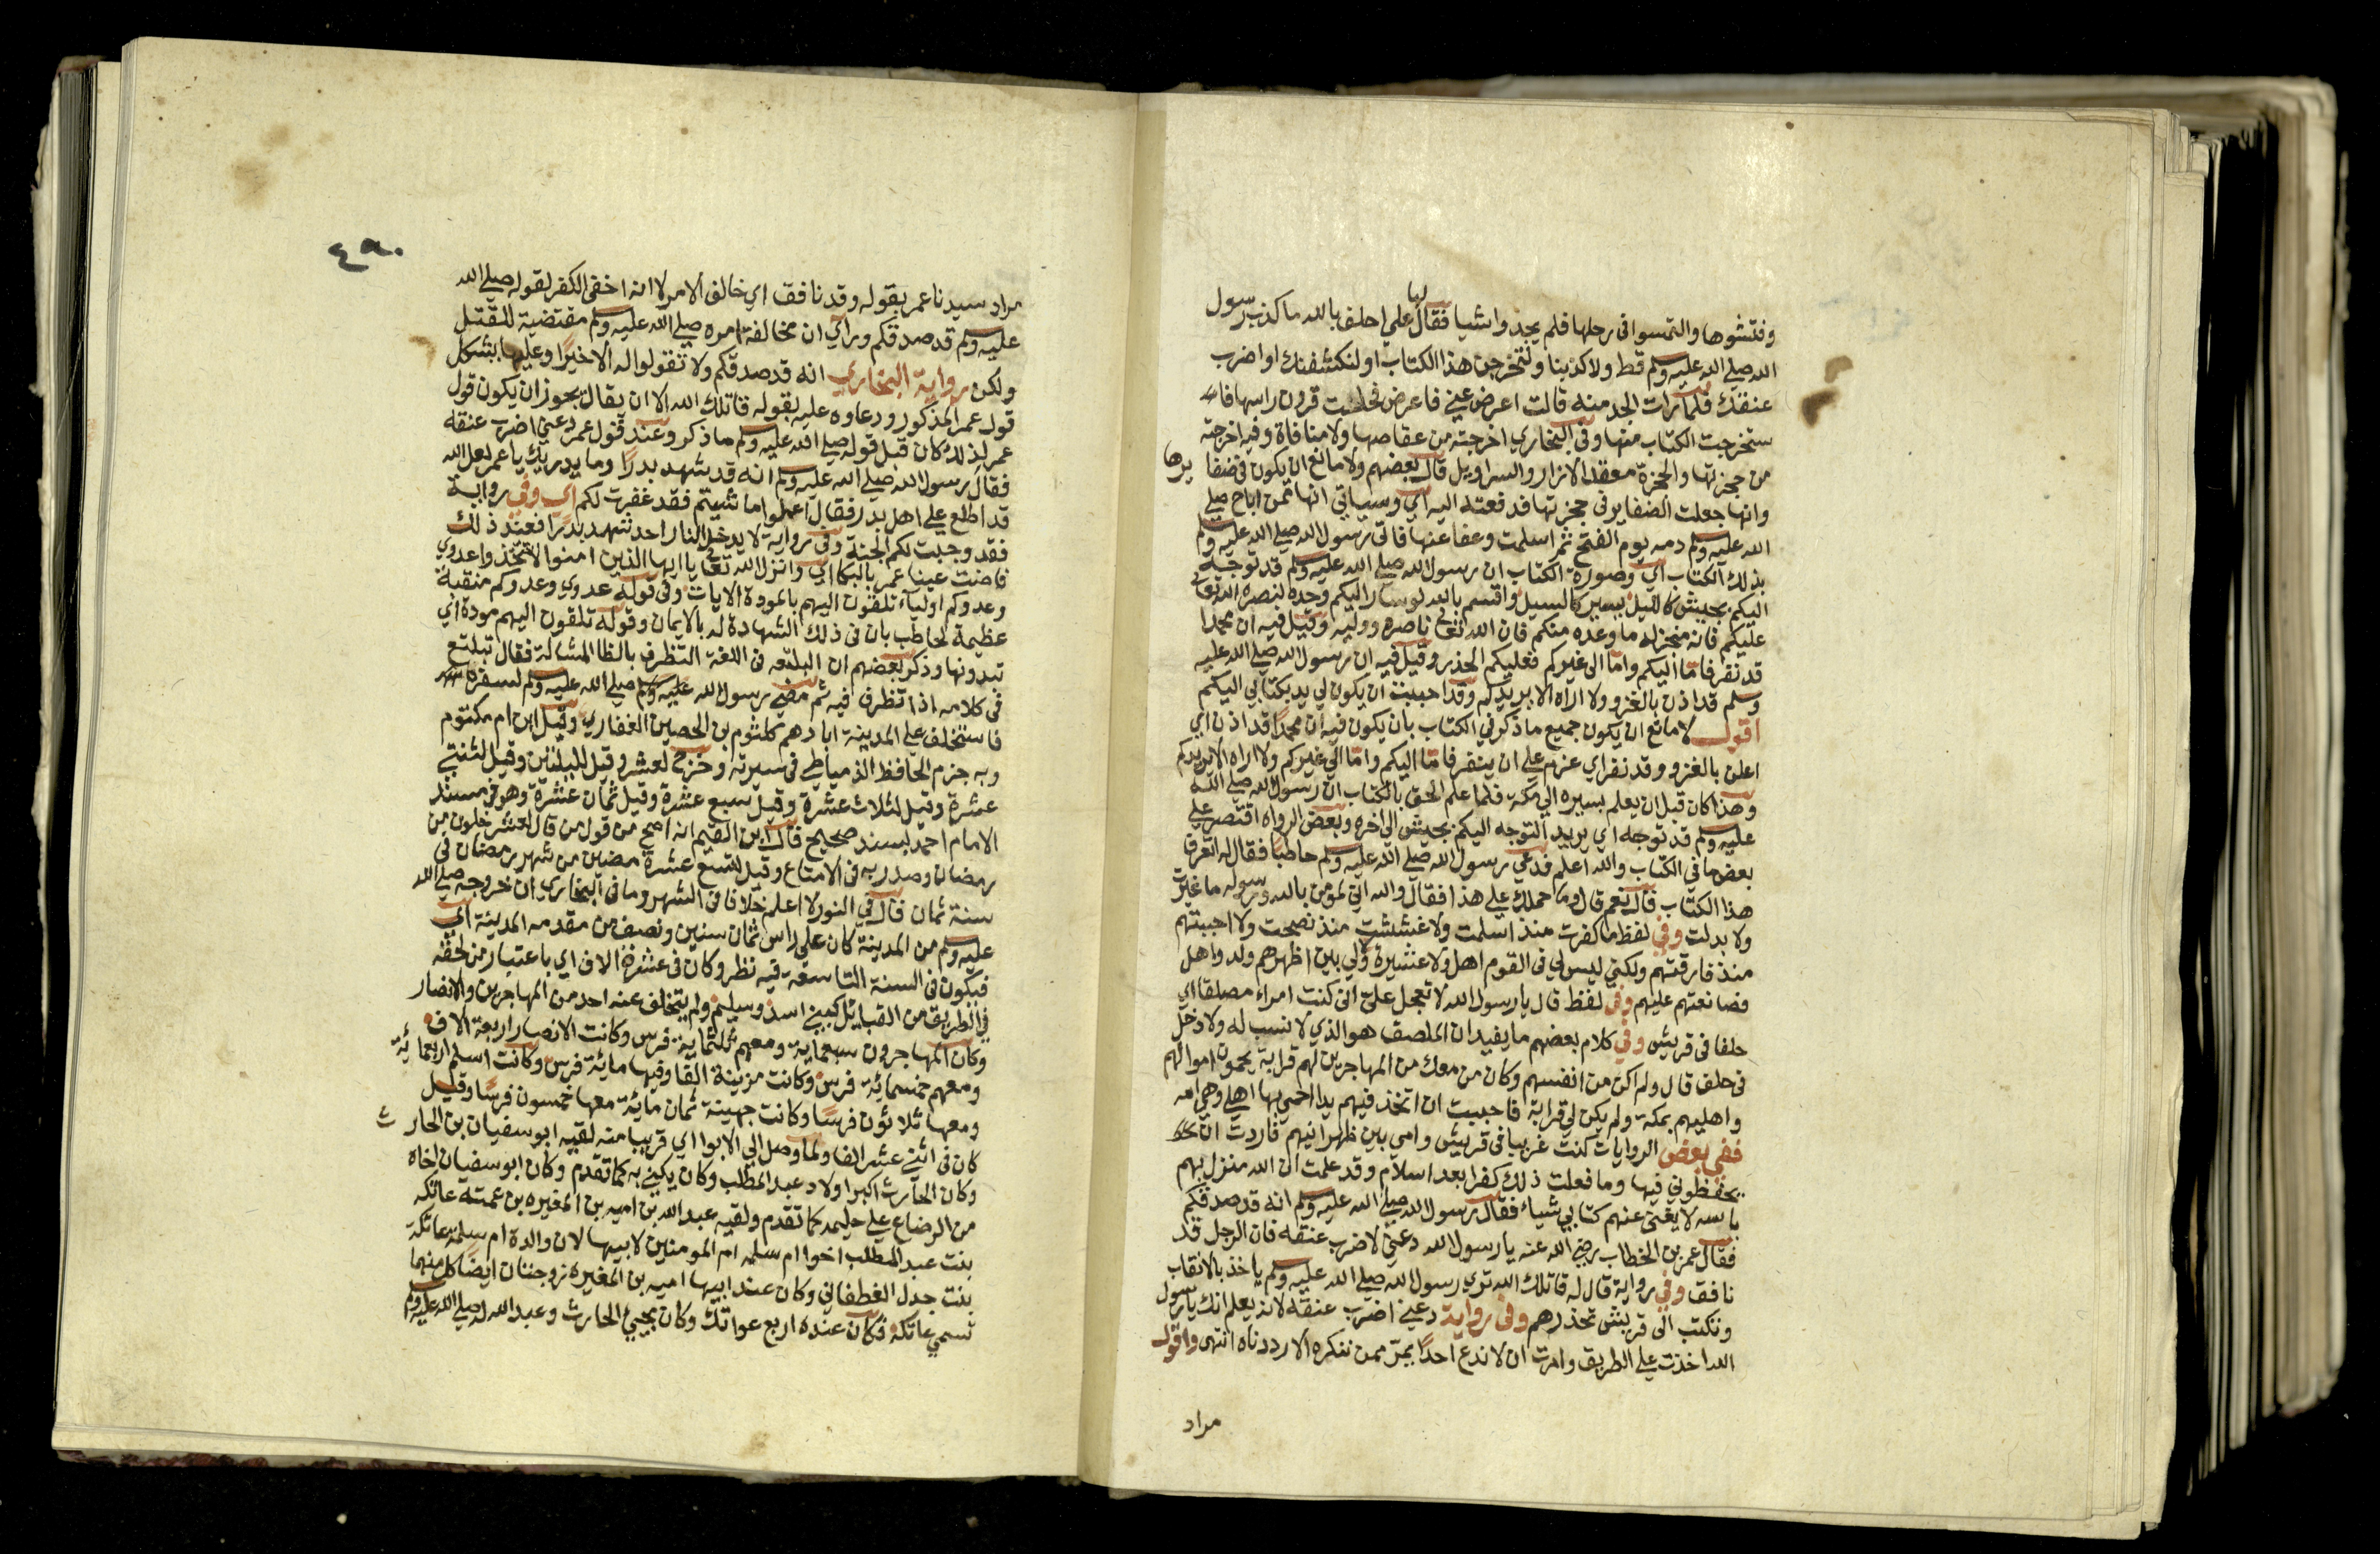 وفتشوها والتمسوا في رحلها فلم يجدوا شيا فقال لها علي احلف بالله ما كذب رسول
الله صلي الله عليه وسلم قط ولا كذبنا ولتخرجن هذا الكتاب او لنكشفنك او اضرب
عنقك فلما رات الجد منه قالت اعرض عني فاعرض فحلت قرون راسها فا
ستخرجت الكتاب منها وفي البخاري اخرجته من عقاصها ولا منافاة وفيه اخرجته
من حجزتها والحجزة معقد الازار والسراويل قال بعضهم ولا مانع ان يكون في ضفايرها
وانها جعلت الضفاير في حجزتها فدفعته اليه اي وسياتي انها ممن اباح صلي
الله عليه وسلم دمه يوم الفتح ثم اسلمت وعفا عنها فاتي رسول الله صلي الله عليه وسلم
بذلك الكتاب اي وصورة الكتاب ان رسول الله صلي الله عليه وسلم قد توجه
اليكم بجيش كالليل يسير كالسيل واقسم بالله لو سار اليكم وحده لنصره الله تعالي
عليكم فانه منجز له ما وعده منكم فان الله تعالي ناصره ووليه وقيل فيه ان محمدا
قد نفر فاما اليكم واما الي غيركم فعليكم الحذر وقيل فيه ان رسول الله صلي الله عليه
وسلم قد اذن بالغزو ولا اراه الا يريدكم وقد احببت ان يكون لي يد بكتابي اليكم
اقول لا مانع ان يكون جميع ما ذكر في الكتاب بان يكون فيه ان محمدا قد اذن اي
اعلن بالغزو وقد نفر اي عزم علي ان ينفر فاما اليكم واما الي غيركم ولا اراه الا يريدكم
وهذا كان قبل ان يعلم بسيره الي مكة فلما علم الحق بالكتاب ان رسول الله صلي الله
عليه وسلم قد توجه اي يريد التوجه اليكم بجيش الي اخره وبعض الرواه اقتصر علي
بعض ما في الكتاب والله اعلم فدعي رسول الله صلي الله عليه وسلم حاطبا فقال له اتعرف
هذا الكتاب قال نعم قال وما حملك علي هذا فقال والله اني لمؤمن بالله ورسوله ما غيرت
ولا بدلت وفي لفظ ما كفرت منذ اسلمت ولا غششت منذ نصحت ولا احببتهم
منذ فارقتهم ولكني ليس لي في القوم اهل ولا عشيرة ولي بين اظهرهم ولد واهل
فصانعتهم عليهم وفي لفظ قال يا رسول الله لا تعجل علي اني كنت امراء ملصقا اي
حلفا في قريش وفي كلام بعضهم ما يفيد ان الملصق هو الذي لا نسب له ولا دخل
في حلف قال ولم اكن من انفسهم وكان من معك من المهاجرين لهم قرابة يحمون اموالهم
واهليهم بمكة ولم يكن لي قرابة فاحببت ان اتخذ فيهم يدا احمي بها اهلي وهي امه
ففي بعض الروايات كنت غريبا في قريش وامي بين ظهرانيهم فاردت ان
يحفظوني فيها وما فعلت ذلك كفرا بعد اسلام وقد علمت ان الله منزل بهم
باسه لا يغني عنهم كتابي شياء فقال رسول الله صلي الله عليه وسلم انه قد صدقكم
فقال عمر بن الخطاب رضي الله عنه يا رسول الله دعني لاضرب عنقه فان الرجل قد
نافق وفي رواية قال له قاتلك الله تري رسول الله صلي الله عليه وسلم ياخذ بالانقاب
وتكتب الي قريش تحذرهم وفي رواية دعني اضرب عنقه لانه يعلم انك يا رسول
الله اخذت علي الطريق وامرت ان لا ندع احدا يمر ممن ننكره الا رددناه انتهي واقول
مراد
٤٩٠
مراد سيدنا عمر بقوله وقد نافق اي خالف الامر لا انه اخفي الكفر لقوله صلي الله
عليه وسلم قد صدقكم وراي ان مخالفة امره صلي الله عليه وسلم مقتضية للقتل
ولكن رواية البخاري انه قد صدقكم ولا تقولوا له الا خيرا وعليها يشكل
قول عمر المذكور ودعاوه عليه بقوله قاتلك الله الا ان يقال يجوز ان يكون قول
عمر لذلك كان قبل قوله صلي الله عليه وسلم ما ذكر وعند قول عمر دعني اضرب عنقه
فقال رسول الله صلي الله عليه وسلم انه قد شهد بدرا وما يدريك يا عمر لعل الله
قد اطلع علي اهل بدر فقال اعملوا ما شيتم فقد غفرت لكم اي وفي رواية
فقد وجبت لكم الجنة وفي رواية لا يدخل النار احد شهد بدرا فعند ذلك
فاضت عينا عمر بالبكا اي وانزل الله تعالي يا ايها الذين امنوا لا تتخذوا عدوي
وعدوكم اولياء تلقون اليهم بالمودة الايات وفي قوله عدوي وعدوكم منقبة
عظيمة لحاطب بان في ذلك الشهادة له بالايمان وقوله تلقون اليهم مودة اي
تبدونها وذكر بعضهم ان البلتعه في اللغة التظرف بالظا المشالة فقال تبلتع
في كلامه اذا تظرف فيه ثم مضي رسول الله صلي الله عليه وسلم لسفره
فاستخلف علي المدينة ابا رهم كلثوم بن الحصين الغفاري وقيل ابن ام مكتوم
وبه جزم الحافظ الدمياطي في سيرته وخرج لعشر وقيل لليلتين وقيل لثنتي
عشرة وقيل لثلاث عشرة وقيل سبع عشرة وقيل ثمان عشرة وهو في مسند
الامام احمد بسند صحيح قال ابن القيم انه اصح من قول من قال لعشر خلون من
رمضان وصدر به في الامتاع وقيل لتسع عشرة مضين من شهر رمضان في
سنة ثمان قال في النور لا اعلم خلافا في الشهر وما في البخاري ان خروجه صلي الله
عليه وسلم من المدينة كان علي راس ثمان سنين ونصف من مقدمه المدينة اي
فيكون في السنة التاسعة فيه نظر وكان في عشرة الاف اي باعتبار من لحقه
في الطريق من القبايل كبني اسد وسليم ولم يتخلف عنه احد من المهاجرين والانصار
وكان المهاجرون سبعماية ومعهم ثلثماية فرس وكانت الانصار اربعة الاف
ومعهم خمسمائة فرس وكانت مزينة الفا وفيها مائة فرس وكانت اسلم اربعمائة
ومعها ثلاثون فرسا وكانت جهينة ثمان مائة معها خمسون فرسا وقيل
كان في اثني عشر الفا ولما وصل الي الابوا اي قريبا منه لقيه ابو سفيان بن الحارث
وكان الحارث اكبر اولاد عبد المطلب وكان يكني به كما تقدم وكان ابو سفيان اخاه
من الرضاع علي حليمه كما تقدم ولقيه عبد الله بن اميه بن المغيره بن عمته عاتكه
بنت عبد المطلب اخوا ام سلمه ام المومنين لابيها لان والدة ام سلمة عاتكة
بنت جدل الغطفاني وكان عند ابيها اميه بن المغيره زوجتان ايضا كل منهما
تسمي عاتكه فكان عنده اربع عواتك وكان مجيئ الحارث وعبد الله له صلي الله عليه وسلم